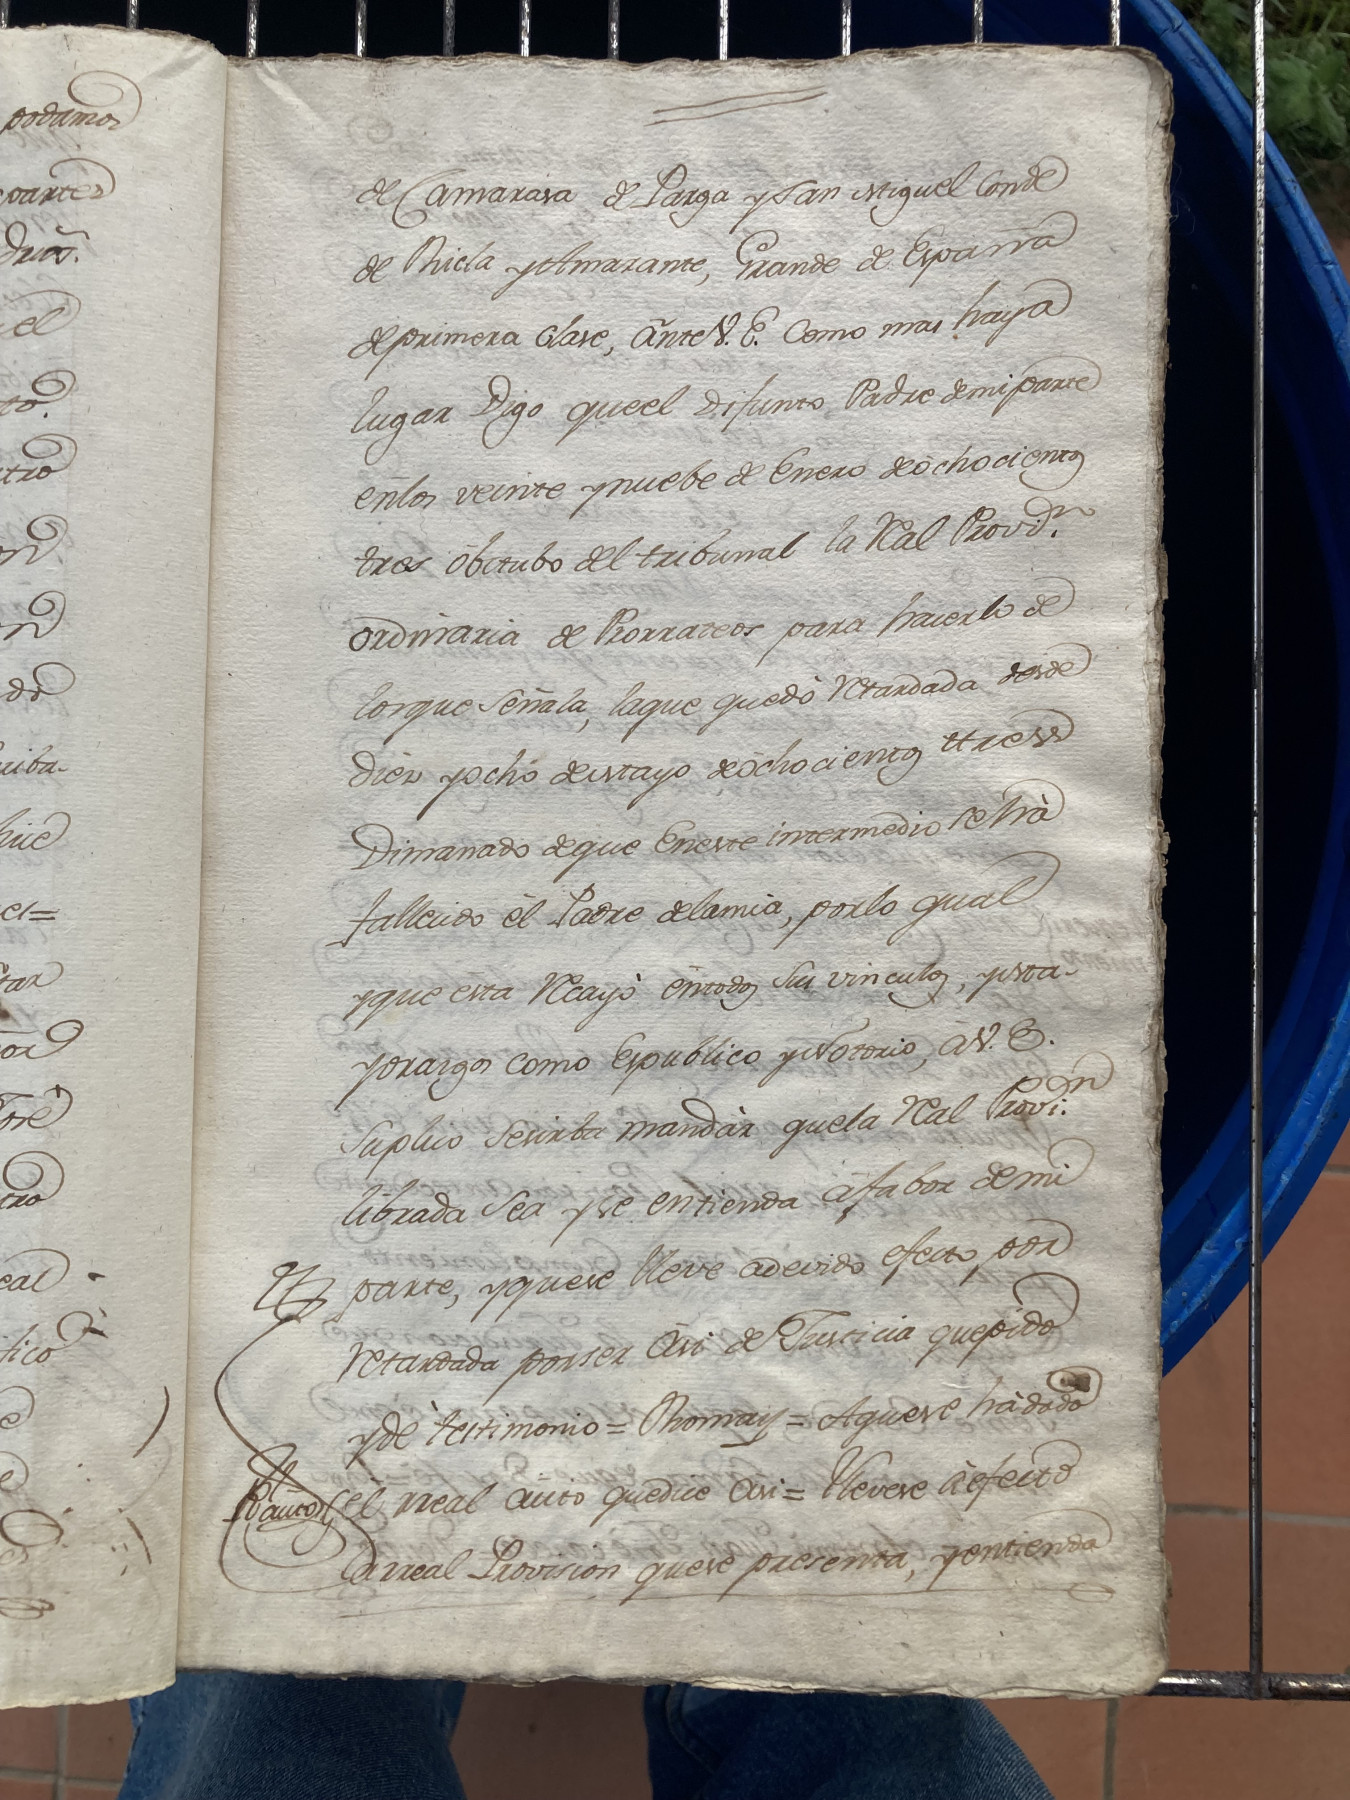 podamos
partes
el
de Camarasa de Parga y San Miguel Conde
de Ricla y Amarante, Grande de España
de primera clase, ante V. E. Como mas haya
lugar Digo que el Difunto Padre de mi parte
en los veinte y nuebe de Enero de ochocientos
tres obtubo del tribunal la Real Provi.n
ordinaria de Prorrateos para hacerlo de
los que señala, la que quedò retardada desde
diez y ocho de Mayo de ochocientos ttress
Dimanado de que En este intermedio se hà
fallecido èl Padre de la mia, por lo qual
y que esta recayò en todos sus vinculos, y Ma-
yorazgos como Espublico y Notorio, à V. E.
suplico se sirba mandàr que la Real Provi.n
librada sea y se entienda à fabor de mi
parte, y que se lleve a devido efecto por
retardada por ser Asi de Justicia que pido
y de testimonio = Rhomay = A que se hà dado
R auto el rreal auto que dice Asi = llevese à efecto
la rreal Provision que se presenta, y entienda